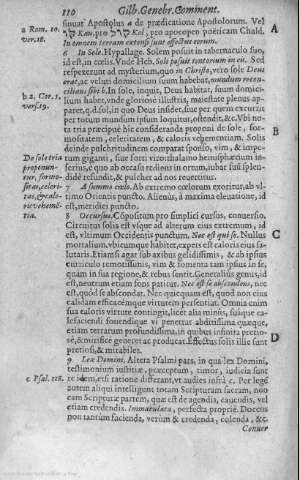 110 Gilb. Genebr. Comment.
a Rom. 10.
ver. 18.
sinuat Apostolus a de prædicatione Apostolorum. Vel
Kau, pro Kol, pro apocopen poëticam Chald.
In omnem terram extensus sunt effossus eorum.
6 In Sole. Hypallage. Solem posuit in tabernaculo suo,
id est, in cœlis. Vnde Heb. Soli posuit tentorium in eis. Sed
respexerunt ad mysterium, quo in Christo, vt in sole Deus
erat, ac veluti domicilium suum habebat, mundum recon-
b 2. Cor. 5.
vers. 19.
cilians sibi b. In sole, inquit, Deus habitat, suum domici-
lium habet, vnde gloriose illustris, maiestate plenus ap-
paret, q. d. sol, in quo Deus insidet, siue per quem excurrit
per totum mundum ipsum loquitur, ostendit, &c. Vbi no-
ta tria præcipuè hic consideranda proponi de sole, for-
mositatem, celeritatem, & caloris vehementiam. Solis
deinde pulchritudinem comparat sponso, vim, & impe-
De sole tria
proponun-
tur, formo-
sitas, celeri-
tas, & calo-
ris vehemẽ-
tia.
tum giganti, siue forti viro: thalamo hemisphærium in-
ferius, quo ab occasu rediens in ortum, iubar suũ splen-
didè refundit, & pulcher ad nos reuertitur.
7 A summo cœlo. Ab extremo cœlorum exoritur, ab vl-
timo Orientis puncto. Alienùs, à maxima eleuatione, id
est, meridiei puncto.
8 Occursus. Cõpositum pro simplici cursus, conuersio.
Circuitus solis est vsque ad alterum eius extremum, id
est, vltimum Occidentis punctum. Nec est qui se. Nullus
mortalium, vbicumque habitet, expers est caloris eius sa-
lutaris. Etiamsi agat sub axibus gelidissimis, & ab ipsius
curriculo remotissimis, vim & fomenta tam ipsius in se,
quàm in sua regione, & rebus sentit. Generalius genus, id
est, neutrum etiam fons patitur. Nec est se abscondens, nec
est, quòd se abscondat. Nec quicquam est, quod non eius
calidam efficacémque virtutem persentiat. Omnia enim
sua caloris virtute contingit, licet alia minùs, suique ca-
lefaciendi fouendique vi penetrat abditissima quæque,
etiam terrarum profundissima, in quibus infinita pretio-
sè, & mirificè generat ac producat. Effectus solis ille sunt
pretiosi, & mirabiles.
9 Lex Domini. Altera Psalmi pars, in qua lex Domini,
testimonium iustitiæ, præceptum, timor, iudicia sunt
c Psal. 118.
re idem, etsi ratione distrant, vt audies infrà c. Per legẽ
autem aliqui intelligunt totam Scripturam sacram, non
eam Scripturæ partem, quæ est de agendis, cauendis, vel
etiam credendis. Immaculata, perfecta propriè. Docens
non tantùm facienda, verùm & credenda, colenda, &c.
Conuer
A
B
C
D